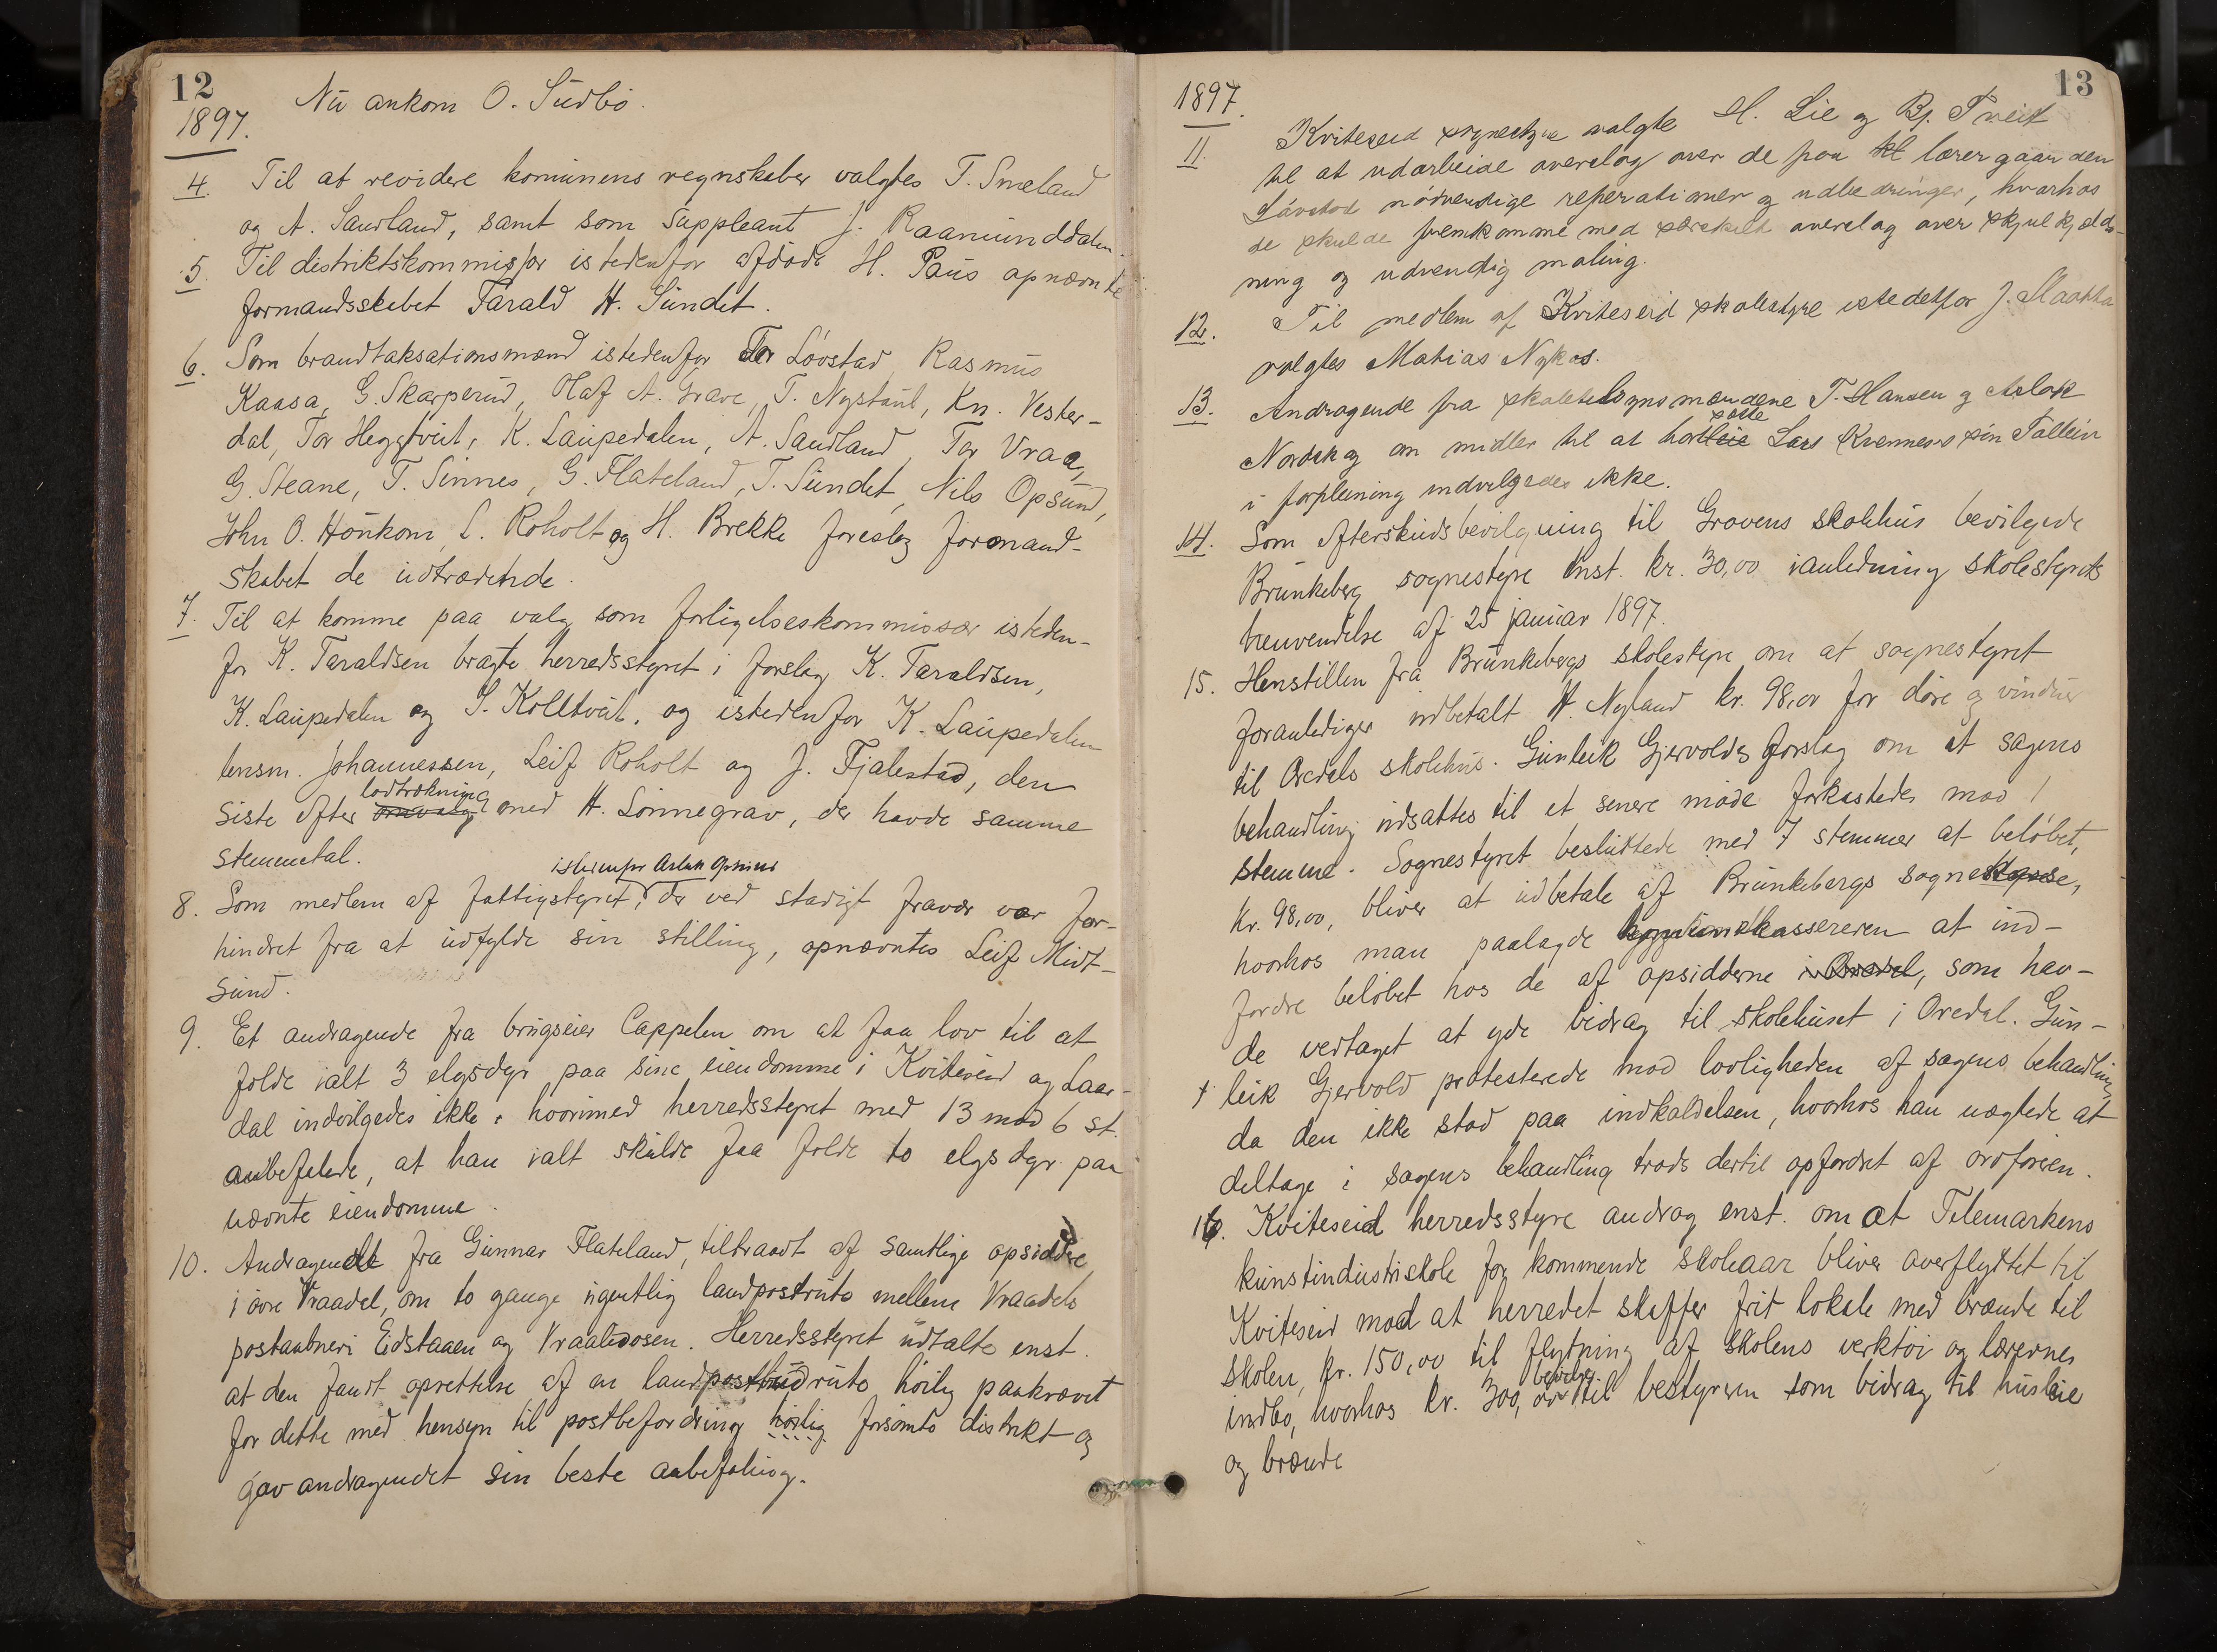 12
Nu ankom O. Sudbø.
1897.
4. Til at revidere komunens regnskaber valgtes T. Smeland
og A. Sandland, samt som Suppleant J. Raamunddalen.
5. Til distriktskommissær istedenfor afdøde H. Paus opnævnte
formandsskabet Tarald H. Sundet.
6. Som brandtaksationsmænd istedenfor Tor Lövstad, Rasmus
Kaasa, G. Skarperud, Olaf A. Grave, T. Nystaul, Kn. Vester-
dal, Tor Heggtveit, K. Laupedalen, A. Sandland, Tor Vraa,
G. Steane, T. Sinnes, G. Flateland, T. Sundet, Nils Opsund,
John O. Honkom, L. Roholt og H. Brekke foreslog formand-
skabet de udtrædende.
7. Til at komme paa valg som forligelseskommissær isteden-
for K. Taraldsen bragte herredsstyret i forslag K. Taraldsen,
K. Laupedalen og S. Kolltveit, og istedenfor K. Laupedalen
lensm. Johannessen, Leif Roholt og J. Fjalestad, den
lodtrækning
siste efter omvalg med H. Lønnegrav, der havde samme
stemmetal.
istedenfor Aslak Opsund
8. Som medlem af fattigstyret, der ved stadigt fravær var for-
hindret fra at udfylde sin stilling, opnævntes Leif Midt-
sund.
9. Et andragende fra brugseier Cappelen om at faa lov til at
fælde ialt 3 elgsdyr paa sine eiendomme i Kviteseid og Laar-
dal indvilgedes ikke, hvorimod herredsstyret med 13 mod 6 st.
anbefalede, at han ialt skulde faa fælde to elgsdyr paa
nævnte eiendomme.
10. Andragende fra Gunnar Flateland, tiltraadt af samtlige opsiddere
i øvre Vraadal, om to gange ugentlig landpostrute mellem Vraadals
postaabneri Eidstaaen og Vraaliosen. Herredsstyret udtalte enst.
at den fandt oprettelse af en landpostbudrute høilig paakrævet
for dette med hensyn til postbefordring høilig forsømte distrikt og
gav andragendet sin beste anbefaling.
13
1897.
11. Kviteseid sognestyre valgte H. Lie og Bj. Tveit
til at udarbeide overslag over de paa lærergaarden
Lövstad nödvendige reperationer og udbedringer, hvorhos
de skulde fremkomme med særskilt overslag over skjul kjæld-
ning og udvendig maling.
12. Til medlem af Kviteseid skolestyre istedetfor J. Slaatta
valgtes Matias Nykos.
13. Andragende fra skoletilsynsmændene T. Hansen og Aslak
sætte
Nordskog om midler til at bortleie Lars Kvennes's søn Tallein
i forpleining indvilgedes ikke.
14. Som efterskudsbevilgning til Grovens skolehus bevilgede
Brunkeberg sognestyre enst. kr. 30,00 i anledning skolestyrets
henvendelse af 25 januar 1897.
15. Henstillen fra Brunkebergs skolestyre om at sognestyret
foranlediger udbetalt H. Nyland kr. 98,00 for døre og vinduer
til Oredals skolehus. Gunleik Gjervolds forslag om at sagens
behandling udsattes til et senere møde forkastedes mod 1
stemme. Sognestyret besluttede med 7 stemmer at beløbet,
kr. 98,00, bliver at udbetale af Brunkebergs sognekasse,
hvorhos man paalagde kassereren at ind-
fordre beløbet hos de af opsidderne i Oredal, som hav-
de vedtaget at yde bidrag til skolehuset i Oredal. Gun-
leik Gjervold protesterede mod lovligheden af sagens behandling,
da den ikke stod paa indkaldelsen, hvorhos han nægtede at
deltage i sagens behandling trods dertil opfordret af ordføreren.
16. Kviteseid herredsstyre androg enst. om at Telemarkens
kunstindustriskole for kommende skoleaar bliver overflyttet til
Kviteseid mod at herredet skaffer frit lokale med brænde til
skolen, kr. 150,00 til flytning af skolens verktøi og lærernes
bevilges
indbo, hvorhos kr. 300,00 til bestyreren som bidrag til husleie
og brænde